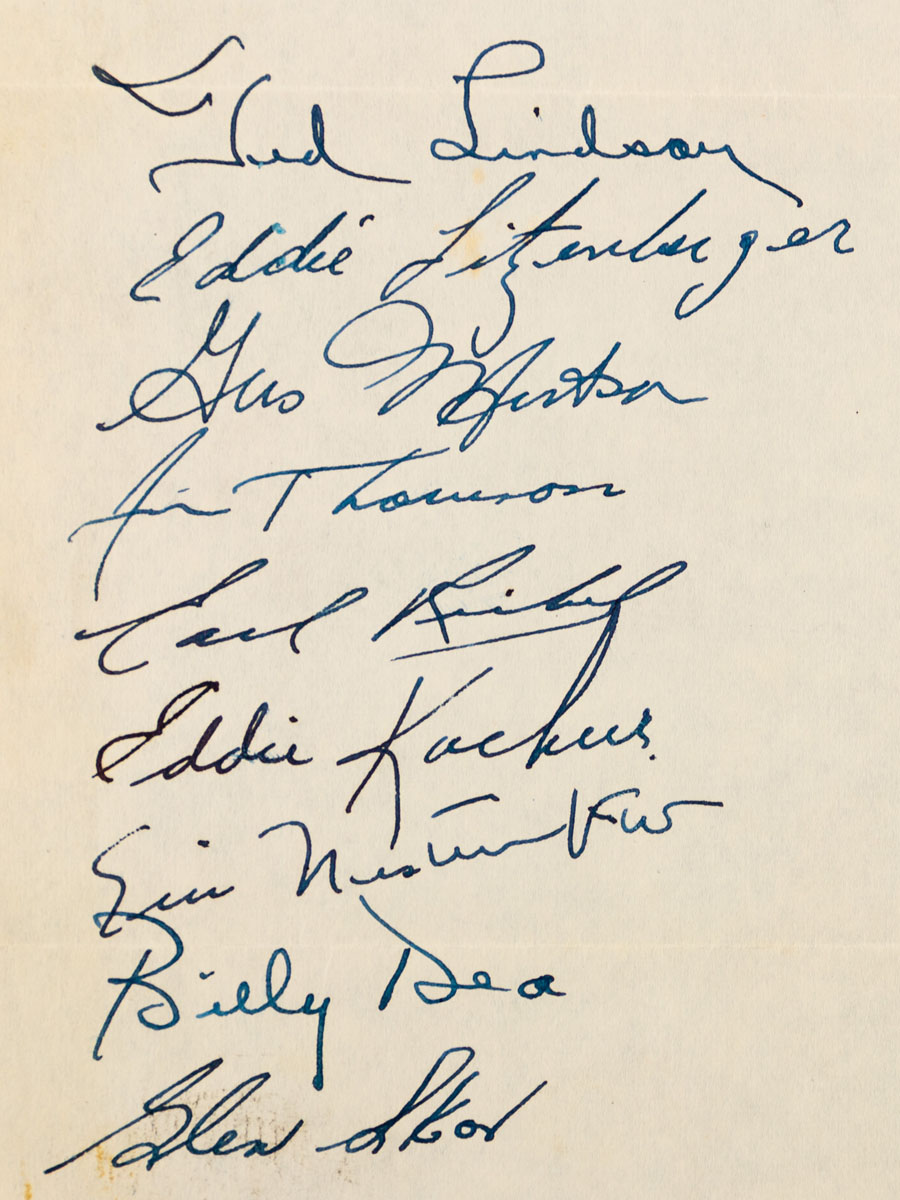 Ted Lindsay
Eddie Litzenberger
Gus Mortson
Jim Thomson
Earl Reibel
Eddie Kachur
Eric Nesterenko
Billy Dea
Glen Skov